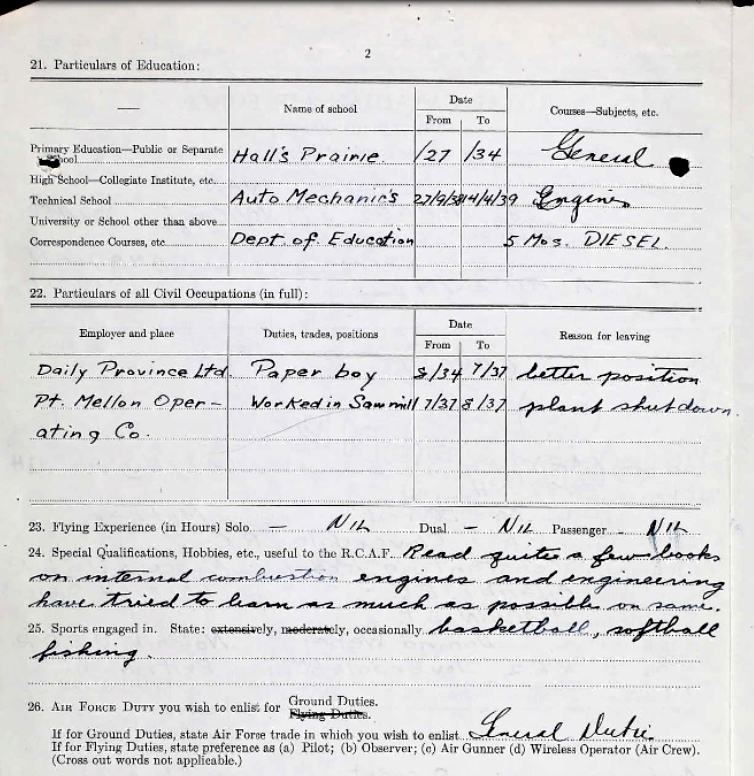 2
21. Particulars of Education:
Name of school Date Courses—Subjects, etc.
From To
Primary Education—Public or Separate
School Hall's Prairie. /27 /34 General
High School—Collegiate Institute, etc.
Technical School Auto Mechanic's 27/9/38 14/4/39 Engines
University or School other than above
Correspondence Courses, etc. Dept of. Education 5 Mos. DIESEL.
22. Particulars of all Civil Occupations (in full):
Employer and place Duties, trades, positions Date Reason for leaving
From To
Daily Province Ltd. Paper boy 8/34 7/37 better position
Pt. Mellon Oper- Worked in Sawmill 7/37 8/37 plant shutdown.
ating Co.
23. Flying Experience (in Hours) Solo — NIL Dual — NIL Passenger — NIL
24. Special Qualifications, Hobbies, etc., useful to the R.C.A.F. Read quite a few books
on internal combustion engines and engineering
have tried to learn as much as possible on same.
25. Sports engaged in. State: extensively, moderately, occasionally basketball, softball
fishing.
26. AIR FORCE DUTY you wish to enlist for Ground Duties.
Flying Duties.
If for Ground Duties, state Air Force trade in which you wish to enlist General Duties
If for Flying Duties, state preference as (a) Pilot; (b) Observer; (c) Air Gunner (d) Wireless Operator (Air Crew).
(Cross out words not applicable.)